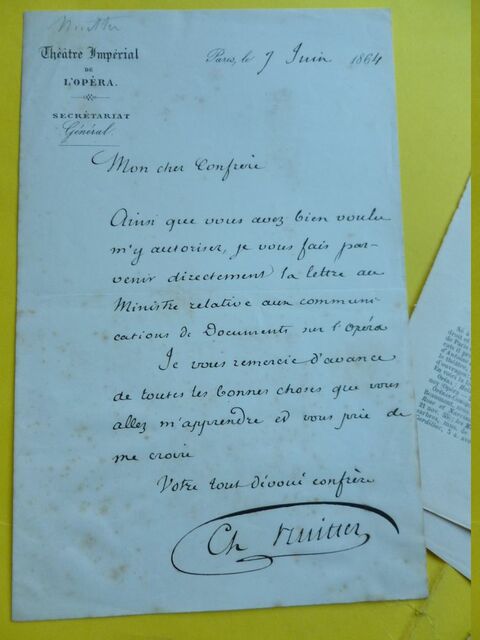 Nuitter
Théâtre Impérial
DE
L'OPÉRA.
SECRÉTARIAT
Général.
Paris, le 7 Juin 1864
Mon cher Confrère
Ainsi que vous avez bien voulu
m'y autoriser, je vous fais par-
venir directement la lettre au
Ministre relative aux communi-
cations de Documents sur l'Opéra
Je vous remercie d'avance
de toutes les bonnes choses que vous
allez m'apprendre et vous prie de
me croire
Votre tout dévoué confrère
Ch Nuitter